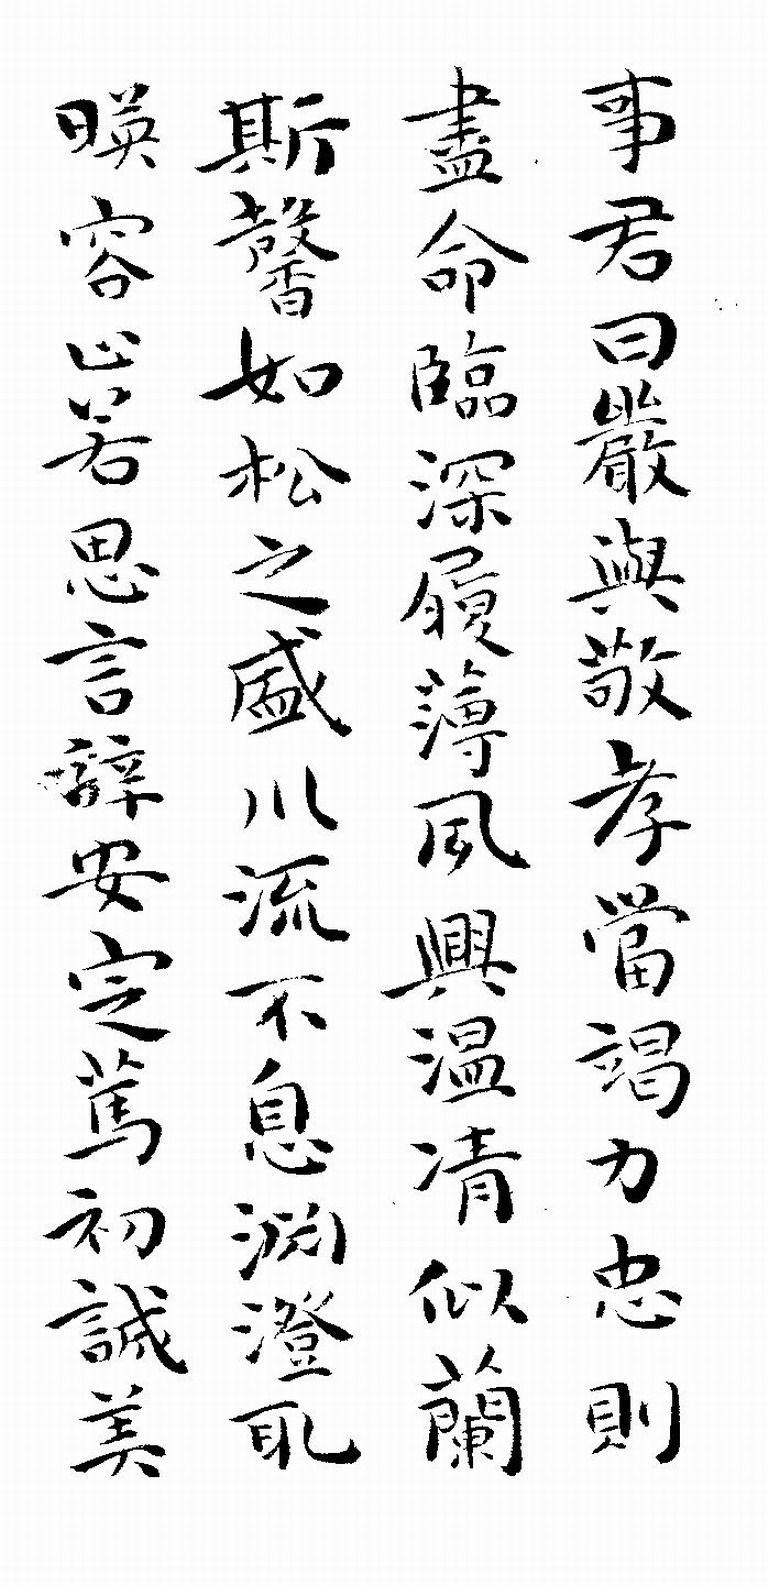 事君曰嚴與敬孝當竭力忠則
盡命臨深履薄夙興温凊似蘭
斯馨如松之盛川流不息淵澄取
暎容止若思言辭安定篤初誠美